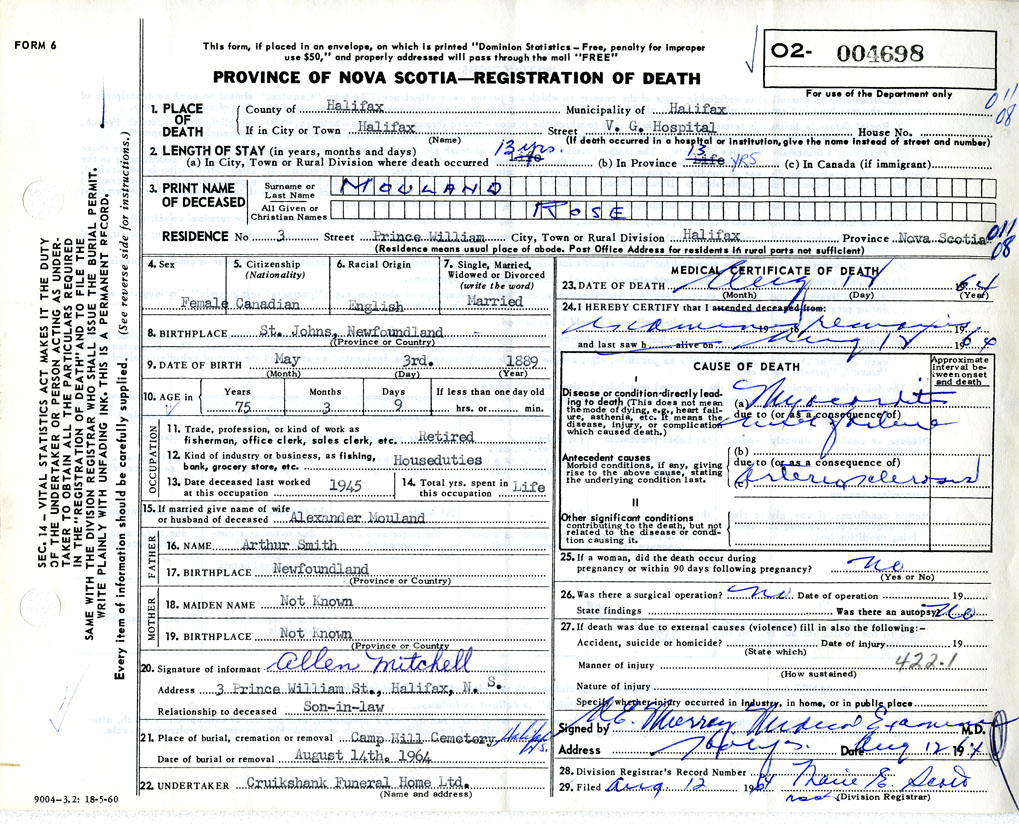 FORM 6
This form, if placed in an envelope, on which is printed "Dominion Statistics – Free, penalty for improper
use $50," and properly addressed will pass through the mail "FREE"
PROVINCE OF NOVA SCOTIA—REGISTRATION OF DEATH
O2- 004698
For use of the Department only
011
08
1. PLACE OF DEATH
County of Halifax Municipality of Halifax
If in City or Town Halifax Street V. G. Hospital House No.
(Name) (If death occurred in a hospital or institution, give name instead of street and number)
2. LENGTH OF STAY (in years, months and days)
(a) In City, Town or Rural Division where death occurred 13 yrs. Life (b) In Province 13 Life yrs (c) In Canada (if immigrant)
3. PRINT NAME OF DECEASED
Surname or Last Name MOULAND
All Given or Christian Names ROSE
RESIDENCE No 3 Street Prince William City, Town or Rural Division Halifax Province Nova Scotia
011
08
(Residence means usual place of abode. Post Office Address for residents in rural parts not sufficient)
4. Sex Female
5. Citizenship (Nationality) Canadian
6. Racial Origin English
7. Single, Married, Widowed or Divorced (write the word) Married
8. BIRTHPLACE St. Johns, Newfoundland
(Province or Country)
9. DATE OF BIRTH May 3rd. 1889
(Month) (Day) (Year)
10. AGE in Years Months Days If less than one day old
75 3 9 hrs. or min.
OCCUPATION
11. Trade, profession, or kind of work as
fisherman, office clerk, sales clerk, etc. Retired
12. Kind of industry or business, as fishing,
bank, grocery store, etc. Houseduties
13. Date deceased last worked
at this occupation 1945
14. Total yrs. spent in
this occupation Life
15. If married give name of wife
or husband of deceased Alexander Mouland
FATHER
16. NAME Arthur Smith
17. BIRTHPLACE Newfoundland
(Province or Country)
MOTHER
18. MAIDEN NAME Not Known
19. BIRTHPLACE Not Known
(Province or Country
20. Signature of informant Allen Mitchell
Address 3 Prince William St., Halifax, N. S.
Relationship to deceased Son-in-law
21. Place of burial, cremation or removal Camp Hill Cemetery, Halifax N.S.
Date of burial or removal August 14th. 1964
22. UNDERTAKER Cruikshank Funeral Home Ltd.
(Name and address)
9004-3.2: 18-5-60
MEDICAL CERTIFICATE OF DEATH
23. DATE OF DEATH Aug 12 64
(Month) (Day) (Year)
24. I HEREBY CERTIFY that I attended deceased from:
19 to 19
and last saw h alive on Aug 12 1964
CAUSE OF DEATH
Approximate interval between onset and death
I
Disease or condition directly leading to death (This does not mean the mode of dying, e.g., heart failure, asthenia, etc. It means the disease, injury, or complication which caused death.)
(a) Myocarditis
due to (or as a consequence of)
Antecedent causes
Morbid conditions, if any, giving rise to the above cause, stating the underlying condition last.
(b)
due to (or as a consequence of)
(c) Arteriosclerosis
II
Other significant conditions
contributing to the death, but not related to the disease or condition causing it.
25. If a woman, did the death occur during
pregnancy or within 90 days following pregnancy? No
(Yes or No)
26. Was there a surgical operation? No. Date of operation 19
State findings Was there an autopsy? No
27. If death was due to external causes (violence) fill in also the following:—
Accident, suicide or homicide? Date of injury 19
(State which)
Manner of injury 422.1
(How sustained)
Nature of injury
Specify whether injury occurred in industry, in home, or in public place
Signed by Murray Medical Examiner M.D.
Address Date Aug 12 19
28. Division Registrar's Record Number
29. Filed Aug. 12 1964 Marie E. Scott
(Division Registrar)
SEC. 14 – VITAL STATISTICS ACT MAKES IT THE DUTY
OF THE UNDERTAKER OR PERSON ACTING AS UNDERTAKER TO OBTAIN ALL THE PARTICULARS REQUIRED
IN THE "REGISTRATION OF DEATH" AND TO FILE THE
SAME WITH THE DIVISION REGISTRAR WHO SHALL ISSUE THE BURIAL PERMIT.
WRITE PLAINLY WITH UNFADING INK. THIS IS A PERMANENT RECORD.
Every item of information should be carefully supplied. (See reverse side for instructions.)